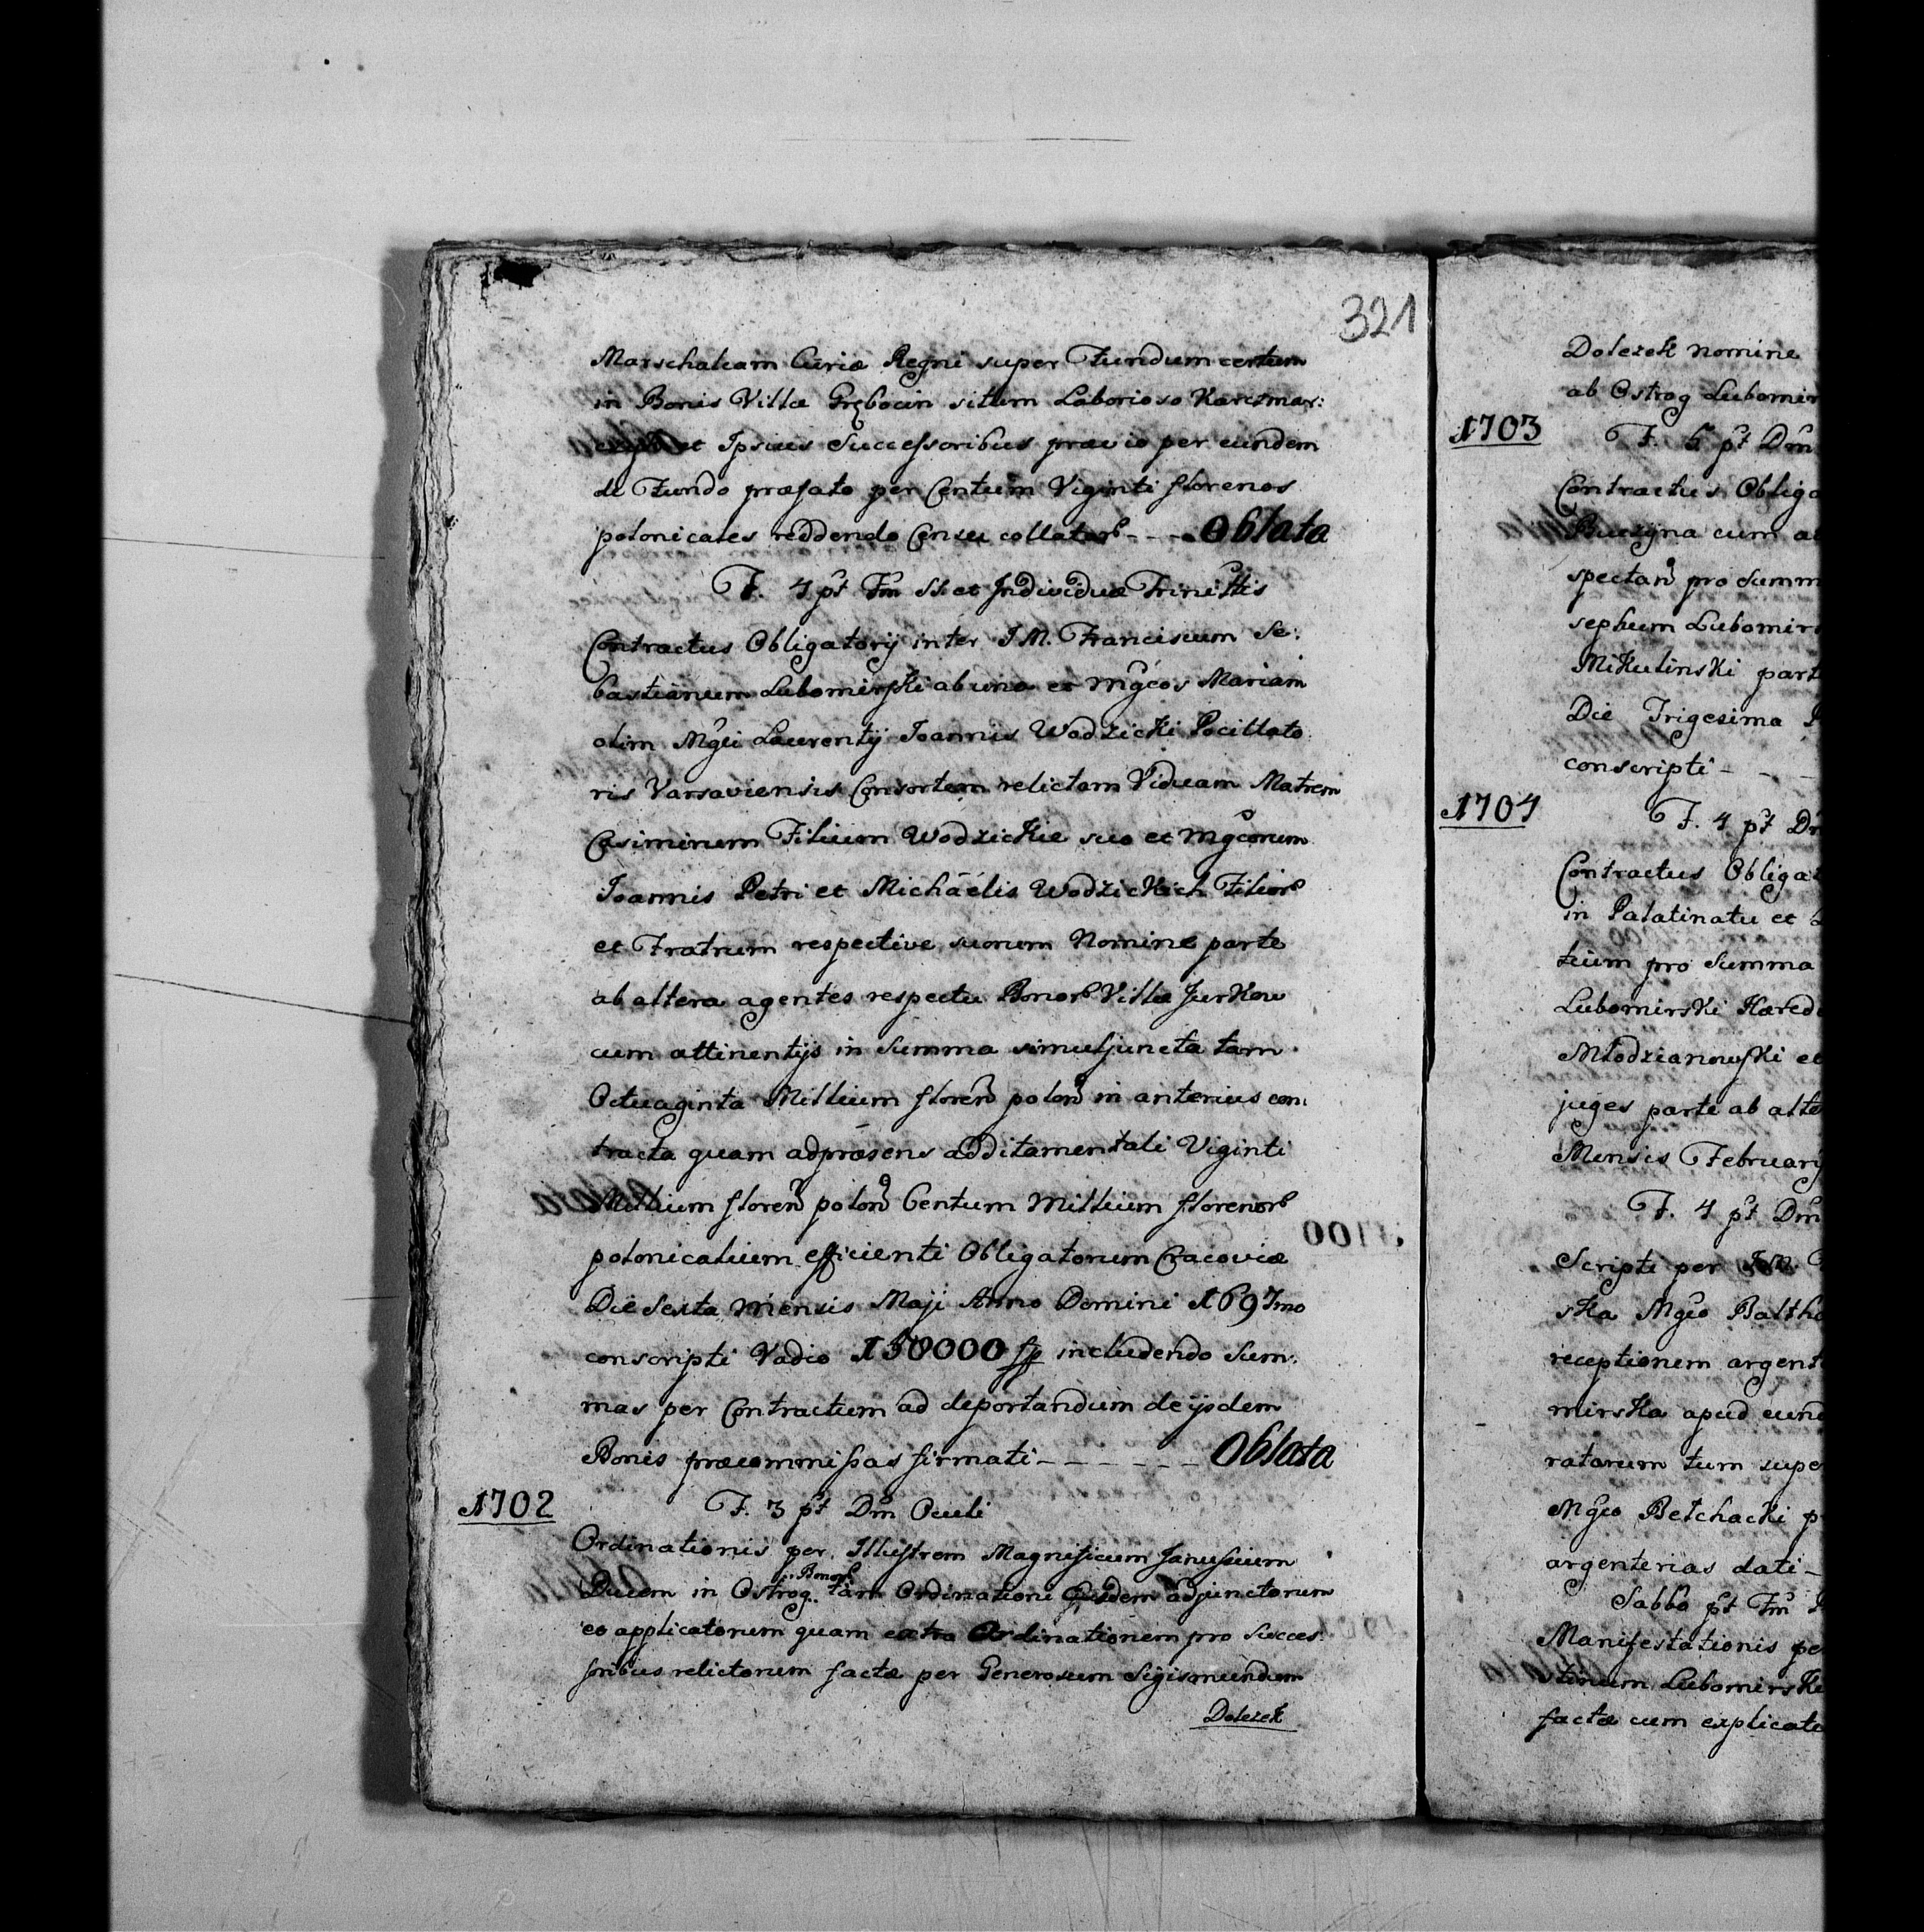 321
Marschalcam Curiæ Regni super Fundum certum
in Bonis Villæ Grębocin situm Laborioso Karczmar:
et Ipsius Successoribus prævio per eundem
de Fundo præfato per Centum Viginti florenos
polonicales reddendo Censu collatorum - - - Oblata
F. 4 pt Fm SS. et Individuæ Trinittis
Contractus Obligatorij inter I. M. Franciscum Se:
bastianum Lubomirski ab una et Mgcos Mariam
olim Mgci Laurentij Joannis Wodzicki Pocillato:
ris Varsaviensis Consortem relictam Viduam Matrem
Casimirum Filium Wodzickie suo et Mgcorum
Joannis Petri et Michaëlis Wodzickich Filiorum
et Fratrum respective suorum Nomine parte
ab altera agentes respectu Bonorum Villæ Jurkow
cum attinentijs in Summa simuljuncta tam
Octuaginta Millium floren polon in anterius con:
tracta quam adpræsens additamentali Viginti
Millium floren polon Centum Millium florenorum
polonicalium efficienti Obligatorum Cracoviæ
Die Sexta Mensis Maji Anno Domini 1697mo
conscripti Vadio 150000 fp includendo Sum:
mas per Contractum ad deportandum de ijsdem
Bonis præcommissas firmati - - - - - - Oblata
1702 F. 3 pt Dm Oculi
Ordinationis per Illustrem Magnificum Janussium
Ducem in Ostrog Bonorum tam Ordinationi Ejusdem adjunctorum
eo applicatorum quam extra Ordinationem pro Succes:
soribus relictorum factæ per Generosum Sigismundum
Dolezek
Dolezek nomine
ab Ostrog Lubomir
1703 F. 5 pt Dm
Contractus Obliga
cum at
spectan pro Summ
sephum Lubomirs
Mikulinski part
Die Trigesima
conscripti - - -
1704 F. 4 pt Dm
Contractus Obligat
in Palatinatu et
tium pro Summa
Lubomirski Hæred
Młodzianowski et
juges parte ab alte
Mensis Februarij
F. 4 pt Dm
Scripti per
ska Mgco Baltha
receptionem argent
mirska apud eund
ratorum tum supe
Mgco Betchacki p
argenterias dati -
Sabbo pt Fm
Manifestationis pe
stinum Lubomirski
factæ cum explicatio